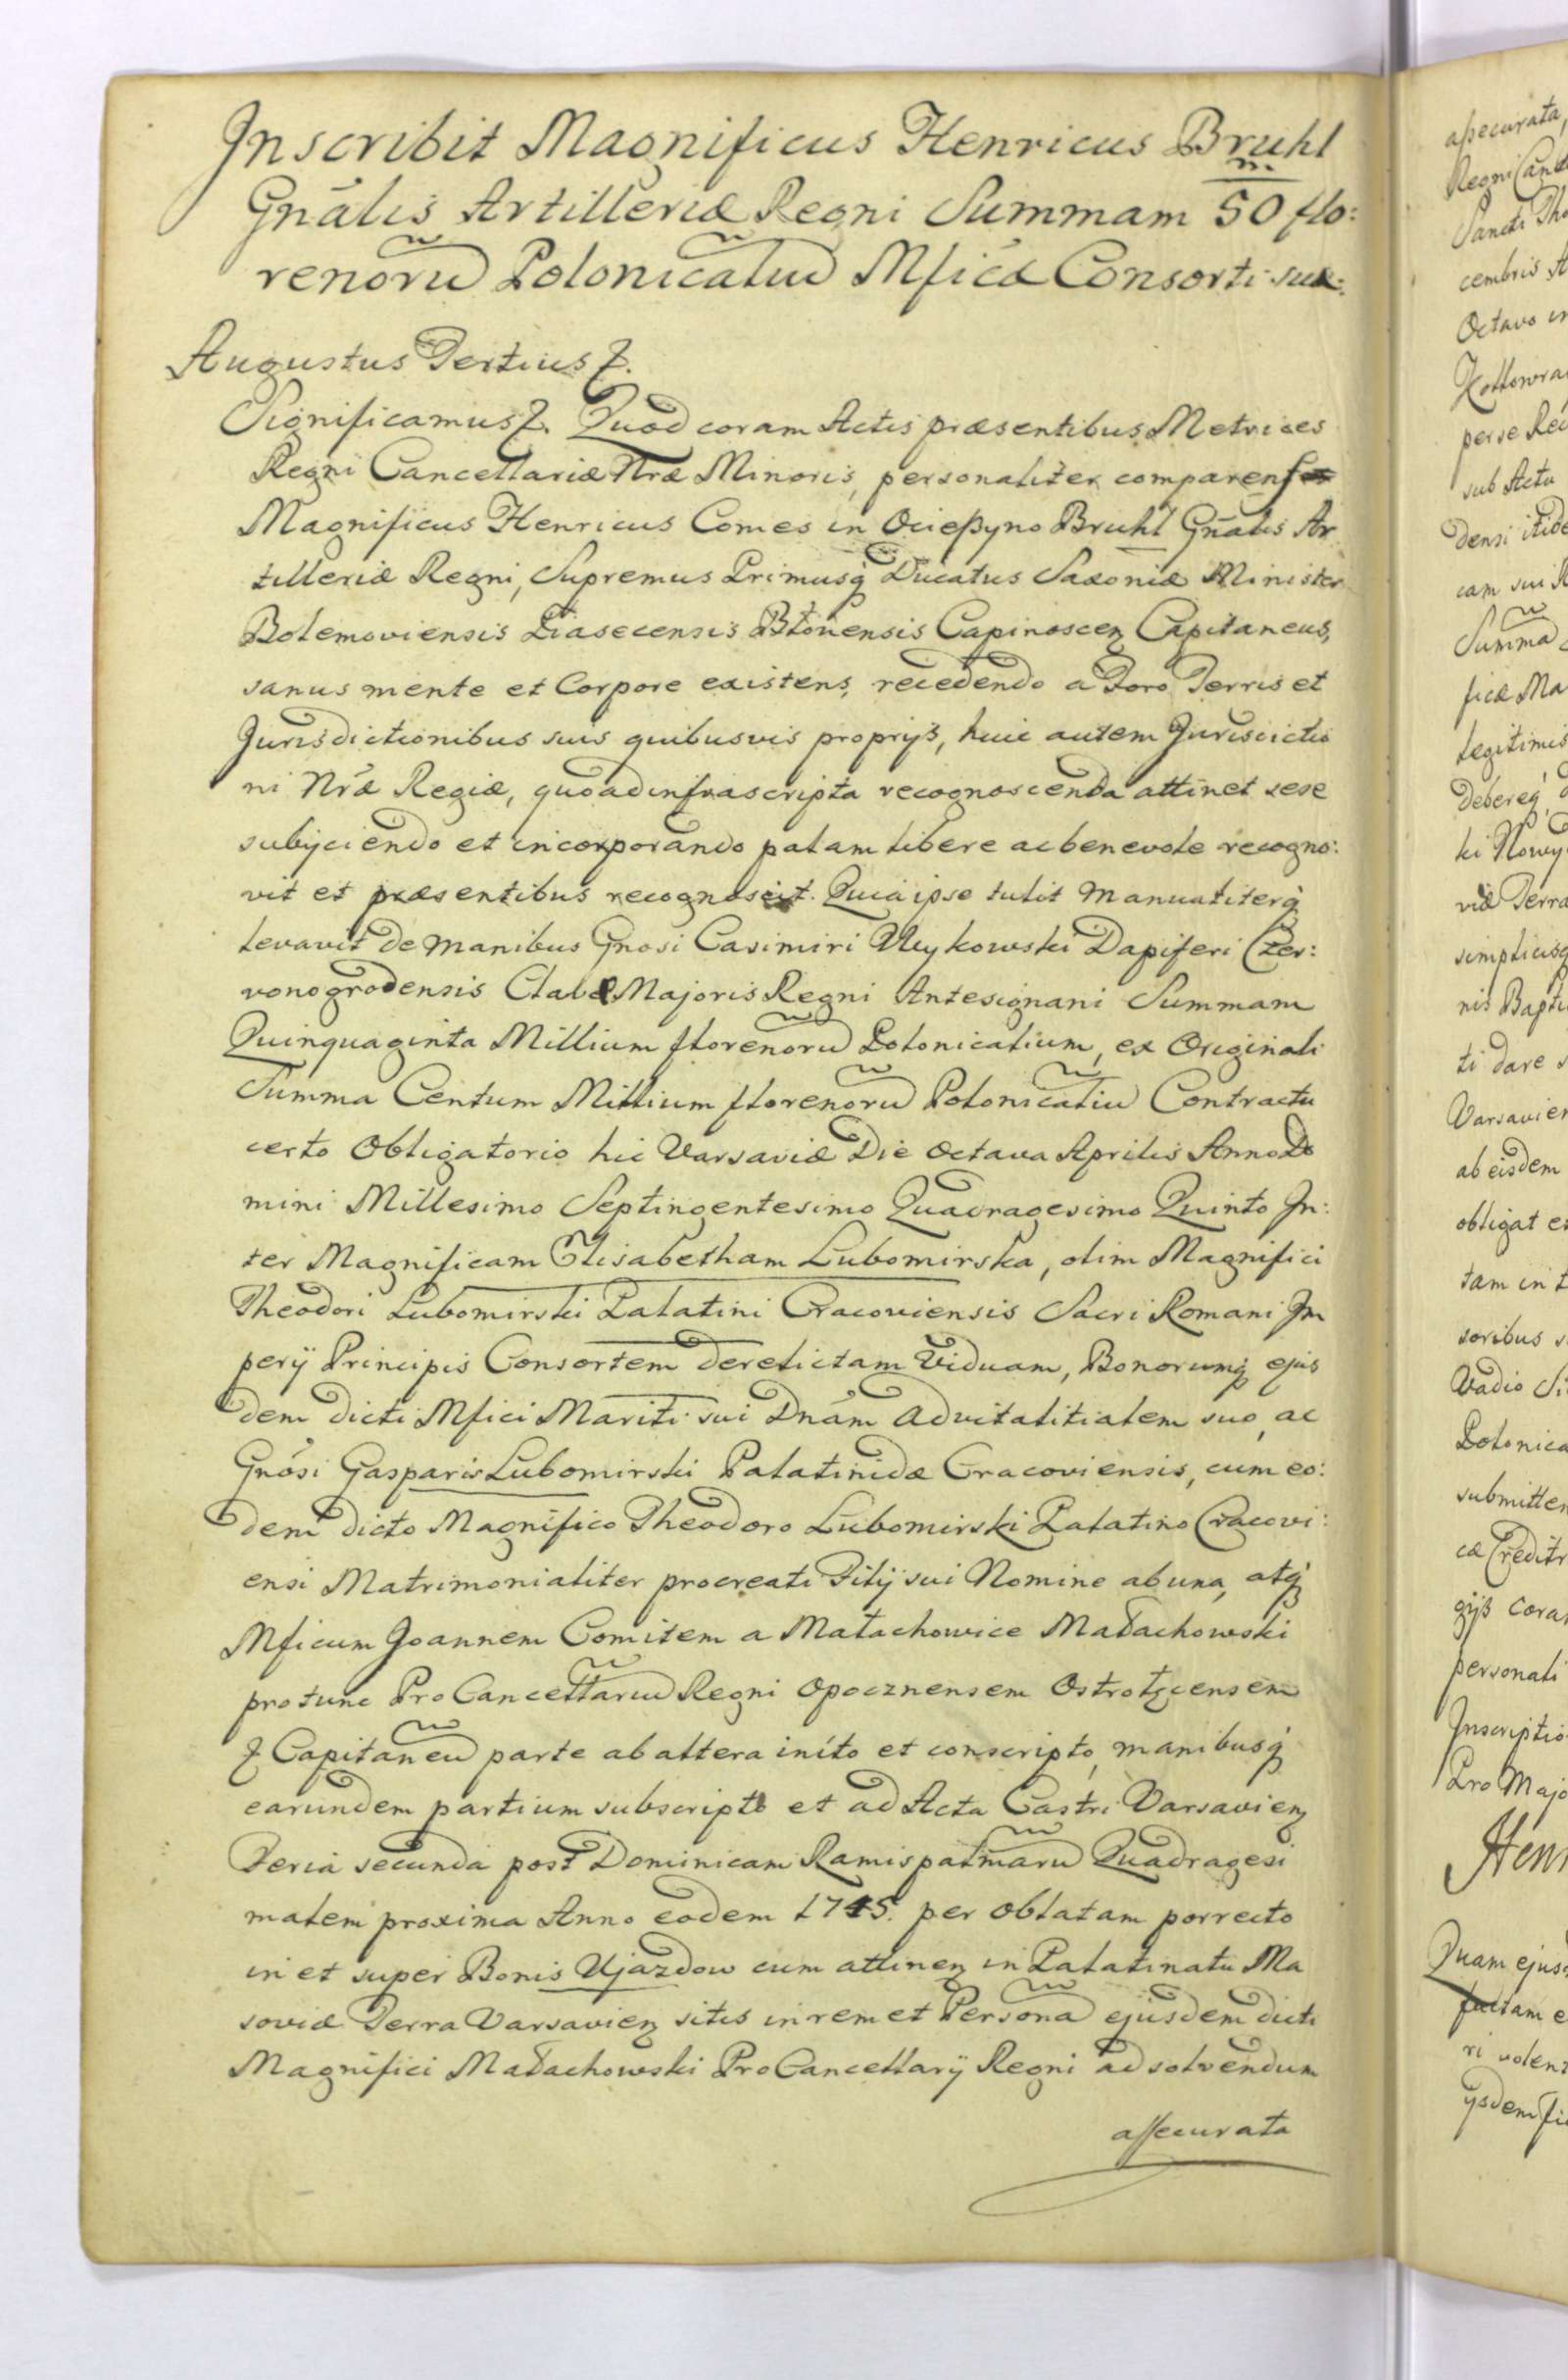 Inscribit Magnificus Henricus Bruhl
Gnãlis Artilleriæ Regni Summam 50 m. flo:
renorũ Polonicaliũ Mficæ Consorti suæ:
Augustus Tertius &.
Significamus &. Quod coram Actis præsentibus Metrices
Regni Cancellariæ Nræ Minoris, personaliter comparens
Magnificus Henricus Comes in Ocieszyno Bruhl Gnãlis Ar
tilleriæ Regni, Supremus Primusq Ducatus Saxoniæ Minister
Bolemoviensis Piasecensis Błonensis Capinoscen Capitaneus,
sanus mente et Corpore existens, recedendo a Foro Terris et
Jurisdictionibus suis quibusvis proprijs, huic autem Jurisdictio
ni Nræ Regiæ, quo ad infrascripta recognoscenda attinet sese
subijciendo et incorporando palam libere ac benevole recogno:
vit et præsentibus recognoscit. Quia ipse tulit manualiterq
levavit de manibus Gnosi Casimiri Wykowski Dapiferi Czer:
vonogrodensis Clavæ Majoris Regni Antesignani Summam
Quinquaginta Millium florenorũ Polonicalium, ex Originali
Summa Centum Millium florenorũ Polonicaliũ Contractu
certo Obligatorio hic Varsaviæ Die Octava Aprilis Anno Do
mini Millesimo Septingentesimo Quadragesimo Quinto In:
ter Magnificam Elisabetham Lubomirska, olim Magnifici
Theodori Lubomirski Palatini Cracoviensis Sacri Romani Im
perij Principis Consortem derelictam Viduam, Bonorumq ejus
dem dicti Mfici Mariti sui Dnam Advitalitialem suo, ac
Gnosi Gasparis Lubomirski Palatinidæ Cracoviensis, cum eo:
dem dicto Magnifico Theodoro Lubomirski Palatino Cracovi:
ensi Matrimonialiter procreati Filij sui Nomine ab una, atq
Mficum Joannem Comitem a Małachowice Małachowski
pro tunc ProCancellariũ Regni Opocznensem Ostrołęcensem
& Capitaneũ parte ab altera inito et conscripto, manibusq
earundem partium subscripto et ad Acta Castri Varsavien
Feria secunda post Dominicam Ramispalmarũ Quadragesi
malem proxima Anno eodem 1745. per Oblatam porrecto
in et super Bonis Ujazdow cum attinen in Palatinatu Ma
soviæ Terra Varsavien sitis in rem et Personã ejusdem dicti
Magnifici Małachowski ProCancellarij Regni ad solvendum
assecurata
assecurata,
Regni
Sancti
cembris
Octavo
per se
sub Actu
densi
cam sui
Summa
ficæ
legitimis
debereq
viæ Terra
simpliciq
nis
ti dare
Varsavien
ab eisdem
obligat
tam in
soribus
Vadio
Polonica
submitten
cæ
gijs
personali
Inscriptio
Pro Majo
Quam
factam
ri volen
ijsdem